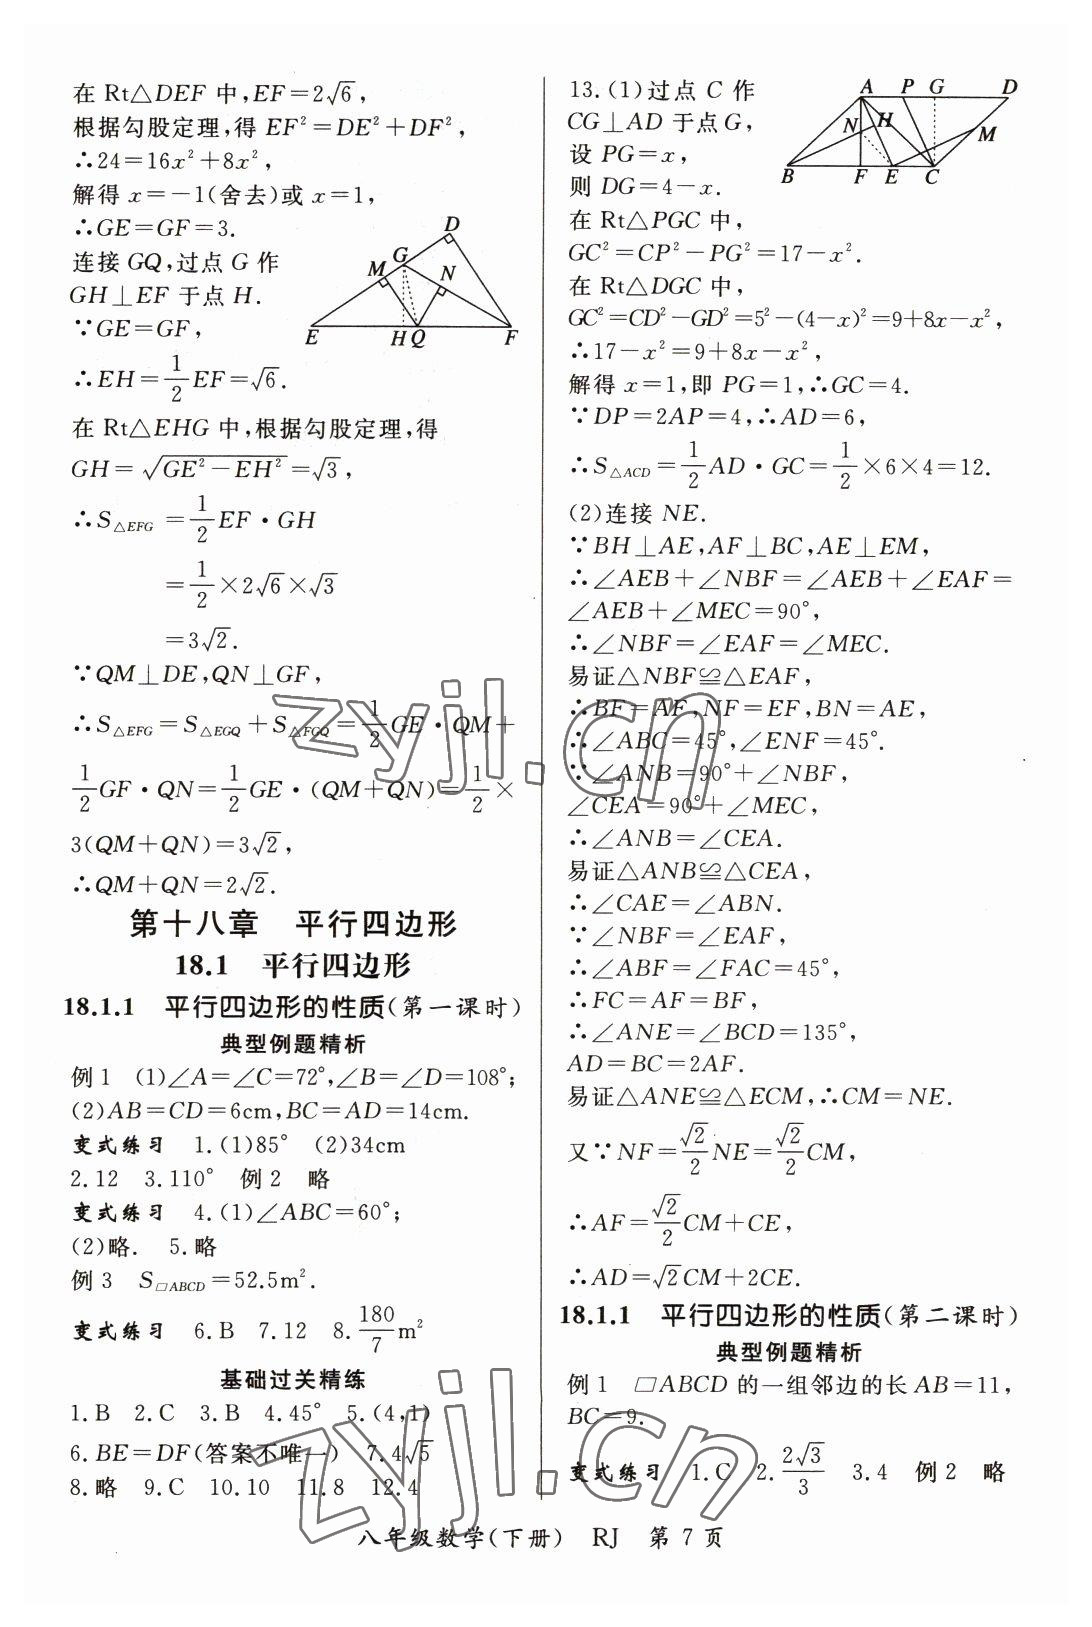 在 Rt△DEF 中,EF=2√6,
根据勾股定理,得 EF²=DE²+DF²,
∴24=16x²+8x²,
解得 x=-1(舍去)或 x=1,
∴GE=GF=3.
连接 GQ,过点 G 作
GH⊥EF 于点 H.
∵GE=GF,
∴EH=1/2EF=√6.
在 Rt△EHG 中,根据勾股定理,得
GH=√(GE²-EH²)=√3,
∴S△EFG=1/2EF·GH
=1/2×2√6×√3
=3√2.
∵QM⊥DE,QN⊥GF,
∴S△EFG=S△EGQ+S△FGQ=1/2GE·QM+
1/2GF·QN=1/2GE·(QM+QN)=1/2×
3(QM+QN)=3√2,
∴QM+QN=2√2.
D
G
M
N
E
H
Q
F
第十八章 平行四边形
18.1 平行四边形
18.1.1 平行四边形的性质(第一课时)
典型例题精析
例1 (1)∠A=∠C=72°,∠B=∠D=108°;
(2)AB=CD=6cm,BC=AD=14cm.
变式练习 1.(1)85° (2)34cm
2.12 3.110° 例2 略
变式练习 4.(1)∠ABC=60°;
(2)略. 5.略
例3 S▱ABCD=52.5m².
变式练习 6.B 7.12 8.180/7m²
基础过关精练
1.B 2.C 3.B 4.45° 5.(4,1)
6.BE=DF(答案不唯一) 7.4√5
8.略 9.C 10.10 11.8 12.4
13.(1)过点 C 作
CG⊥AD 于点 G,
设 PG=x,
则 DG=4-x.
A P G D
N H M
B F E C
在 Rt△PGC 中,
GC²=CP²-PG²=17-x².
在 Rt△DGC 中,
GC²=CD²-GD²=5²-(4-x)²=9+8x-x²,
∴17-x²=9+8x-x²,
解得 x=1,即 PG=1,∴GC=4.
∵DP=2AP=4,∴AD=6,
∴S△ACD=1/2AD·GC=1/2×6×4=12.
(2)连接 NE.
∵BH⊥AE,AF⊥BC,AE⊥EM,
∴∠AEB+∠NBF=∠AEB+∠EAF=
∠AEB+∠MEC=90°,
∴∠NBF=∠EAF=∠MEC.
易证△NBF≌△EAF,
∴BF=AF,NF=EF,BN=AE,
∴∠ABC=45°,∠ENF=45°.
∵∠ANB=90°+∠NBF,
∠CEA=90°+∠MEC,
∴∠ANB=∠CEA.
易证△ANB≌△CEA,
∴∠CAE=∠ABN.
∵∠NBF=∠EAF,
∴∠ABF=∠FAC=45°,
∴FC=AF=BF,
∴∠ANE=∠BCD=135°,
AD=BC=2AF.
易证△ANE≌△ECM,∴CM=NE.
又∵NF=√2/2NE=√2/2CM,
∴AF=√2/2CM+CE,
∴AD=√2CM+2CE.
18.1.1 平行四边形的性质(第二课时)
典型例题精析
例1 ▱ABCD 的一组邻边的长 AB=11,
BC=9.
变式练习 1.C 2.2√3/3 3.4 例2 略
八年级数学(下册) RJ 第7页
zyjl.cn
zyjl.cn